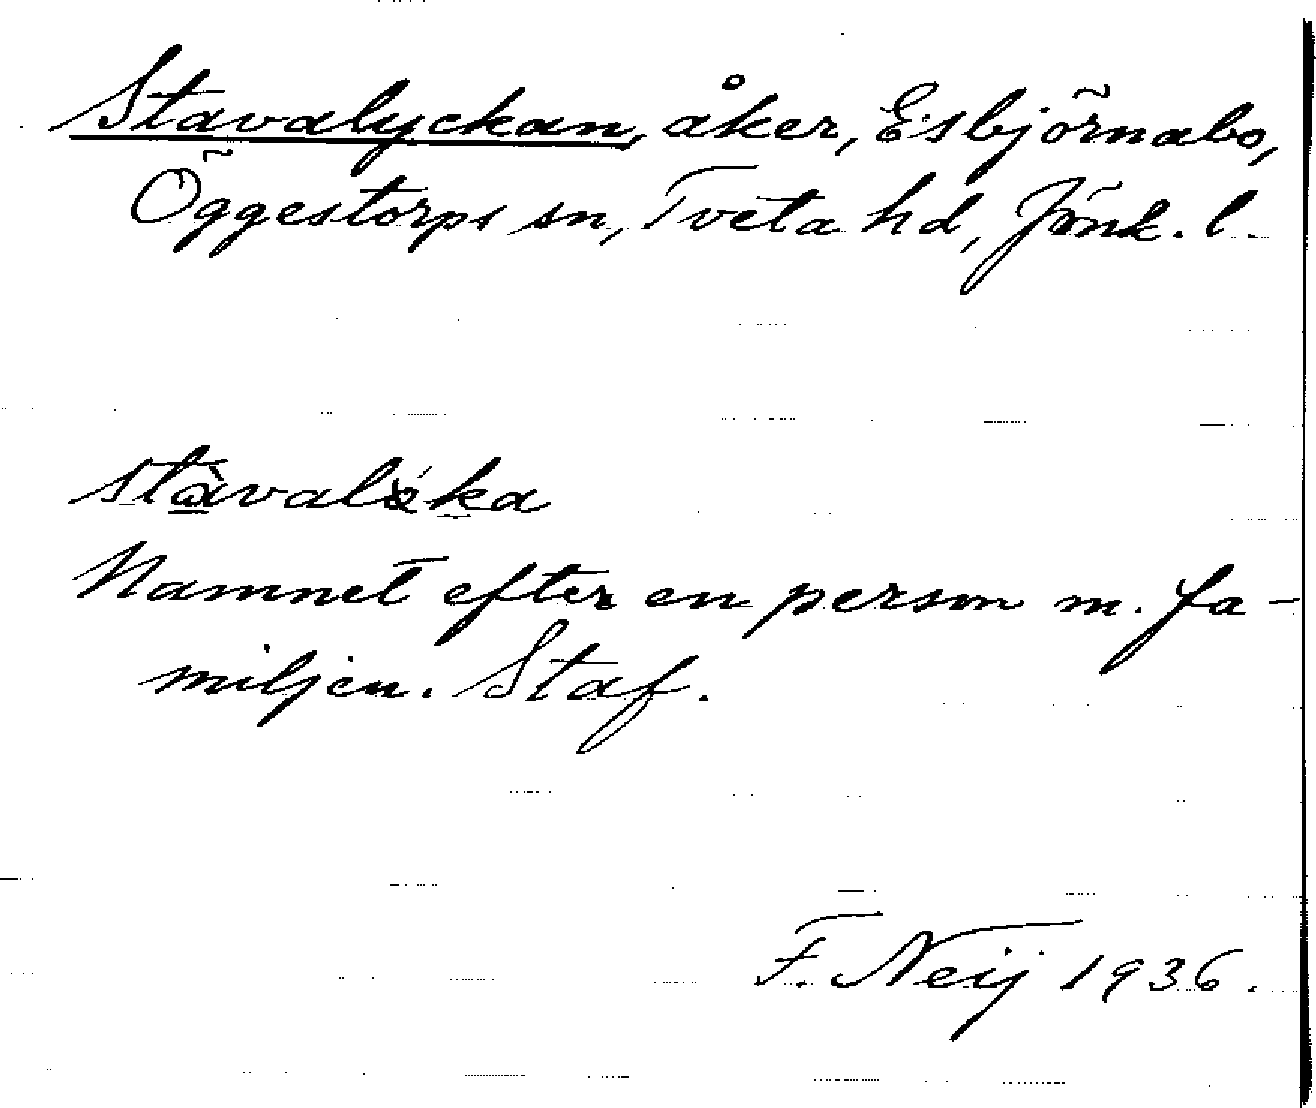 Stavalyckan, åker, Esbjörnabo,
Öggestorps sn, Tveta hd, Jönk. l.
stàvalöka
Namnet efter en person m. fa-
miljen. Staf.
F. Neij 1936.